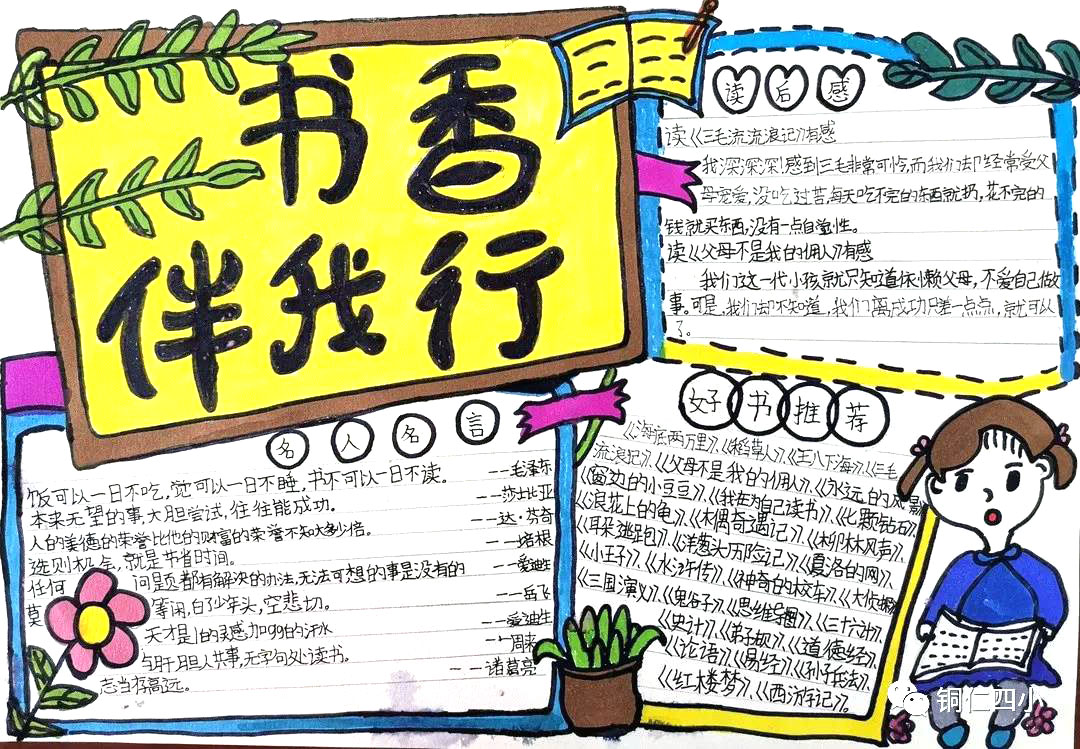 书香
伴我行
读后感
读《三毛流流浪记》有感
我深深深!感到三毛非常可怜,而我们却经常受父
母宠爱,没吃过苦,每天吃不完的东西就扔,花不完的
钱就买东西,没有一点自觉性。
读《父母不是我的佣人》有感
我们这一代小孩就只知道依懒父母,不爱自己做
事。可是,我们却不知道,我们离成功只差一点点,就可以
了。
名人名言
饭可以一日不吃,觉可以一日不睡,书不可以一日不读。
——毛泽东
本来无望的事,大胆尝试,往往能成功。
——莎士比亚
人的美德的荣誉比他的财富的荣誉不知大多少倍。
——达·芬奇
选则机会,就是节省时间。
——培根
任何 问题都有解决的办法,无法可想的事是没有的
——爱迪生
莫 等闲,白少年头,空悲切。
——岳飞
天才是1的灵感加99的汗水
——爱迪生
与肝胆人共事,无字句处读书。
——周来
志当存高远。
——诸葛亮
好书推荐
《海底两万里》、《稻草人》、《王八下海》、《三毛
流浪记》、《父母不是我的佣人》、《永远的风景
《窗边的小豆豆》、《我在为自己读书》、《七颗钻石》、
《浪花上的龟》、《木偶奇遇记》、《柳林风声》、
《耳朵逃跑》、《洋葱头历险记》、《夏洛的网》、
《小王子》、《水浒传》、《神奇的校车》、《大侦探
《三国演义》、《鬼谷子》、《思维导图》、《三十六计》、
《史计》、《弟子规》、《道德经》、
《论语》、《易经》、《孙子兵法》、
《红楼梦》、《西游记》。
铜仁四小